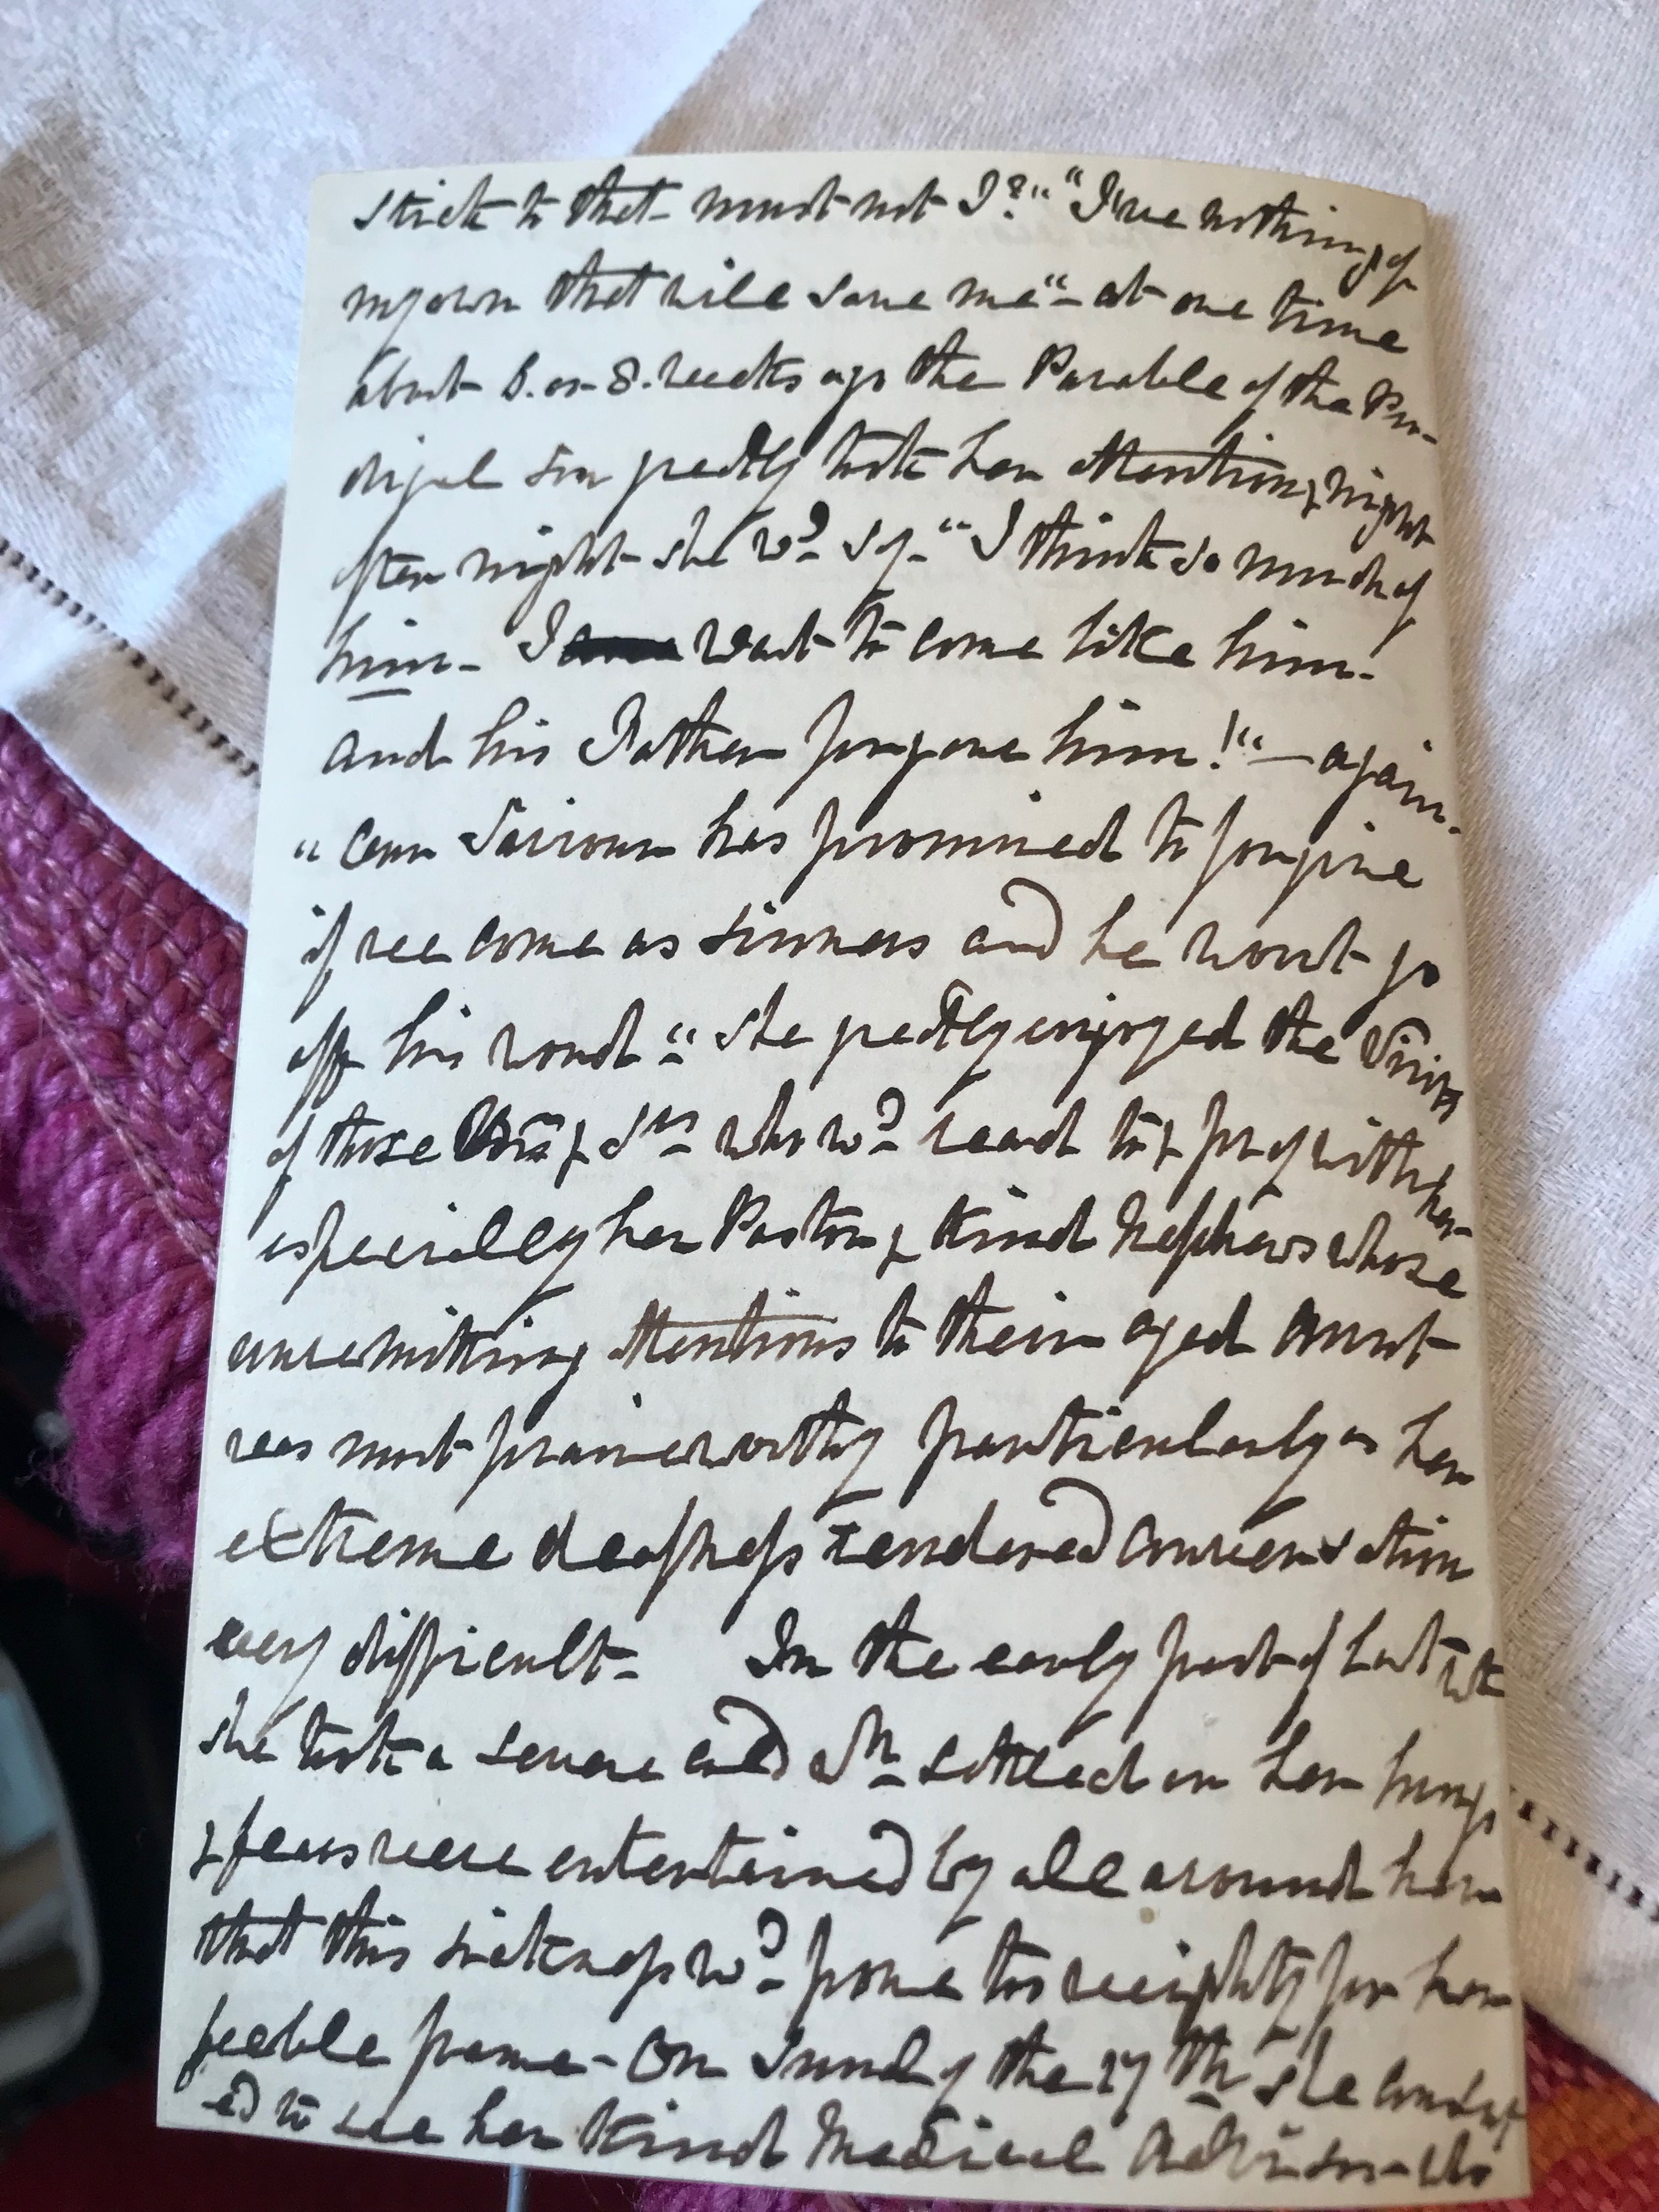 stick to that - must not I?" "I've nothing of
my own that will save me" - at one time
about 6. or 8. weeks ago the Parable of the Pro-
digal Son greatly took her attention, night
after night she wd. say - "I think so much of
him - I want to come like him -
and his Father forgave him!" - again -
"Our Saviour has promised to forgive
if we come as sinners and he wont go
off his word" - She greatly enjoyed the Visits
of those & Srs who wd. read to & pray with her
especially her Pastor & Kind Nephews whose
unremitting attentions to their aged Aunt
was most praiseworthy particularly as her
extreme deafness rendered conversation
very difficult - In the early part of last wk
she took a severe cold wh. settled on her lungs
& fears were entertained by all around her
that this sickness wd. prove too weighty for her
feeble frame - On Sunday the 17th she
ed to see her Kind Medical Adviser - who